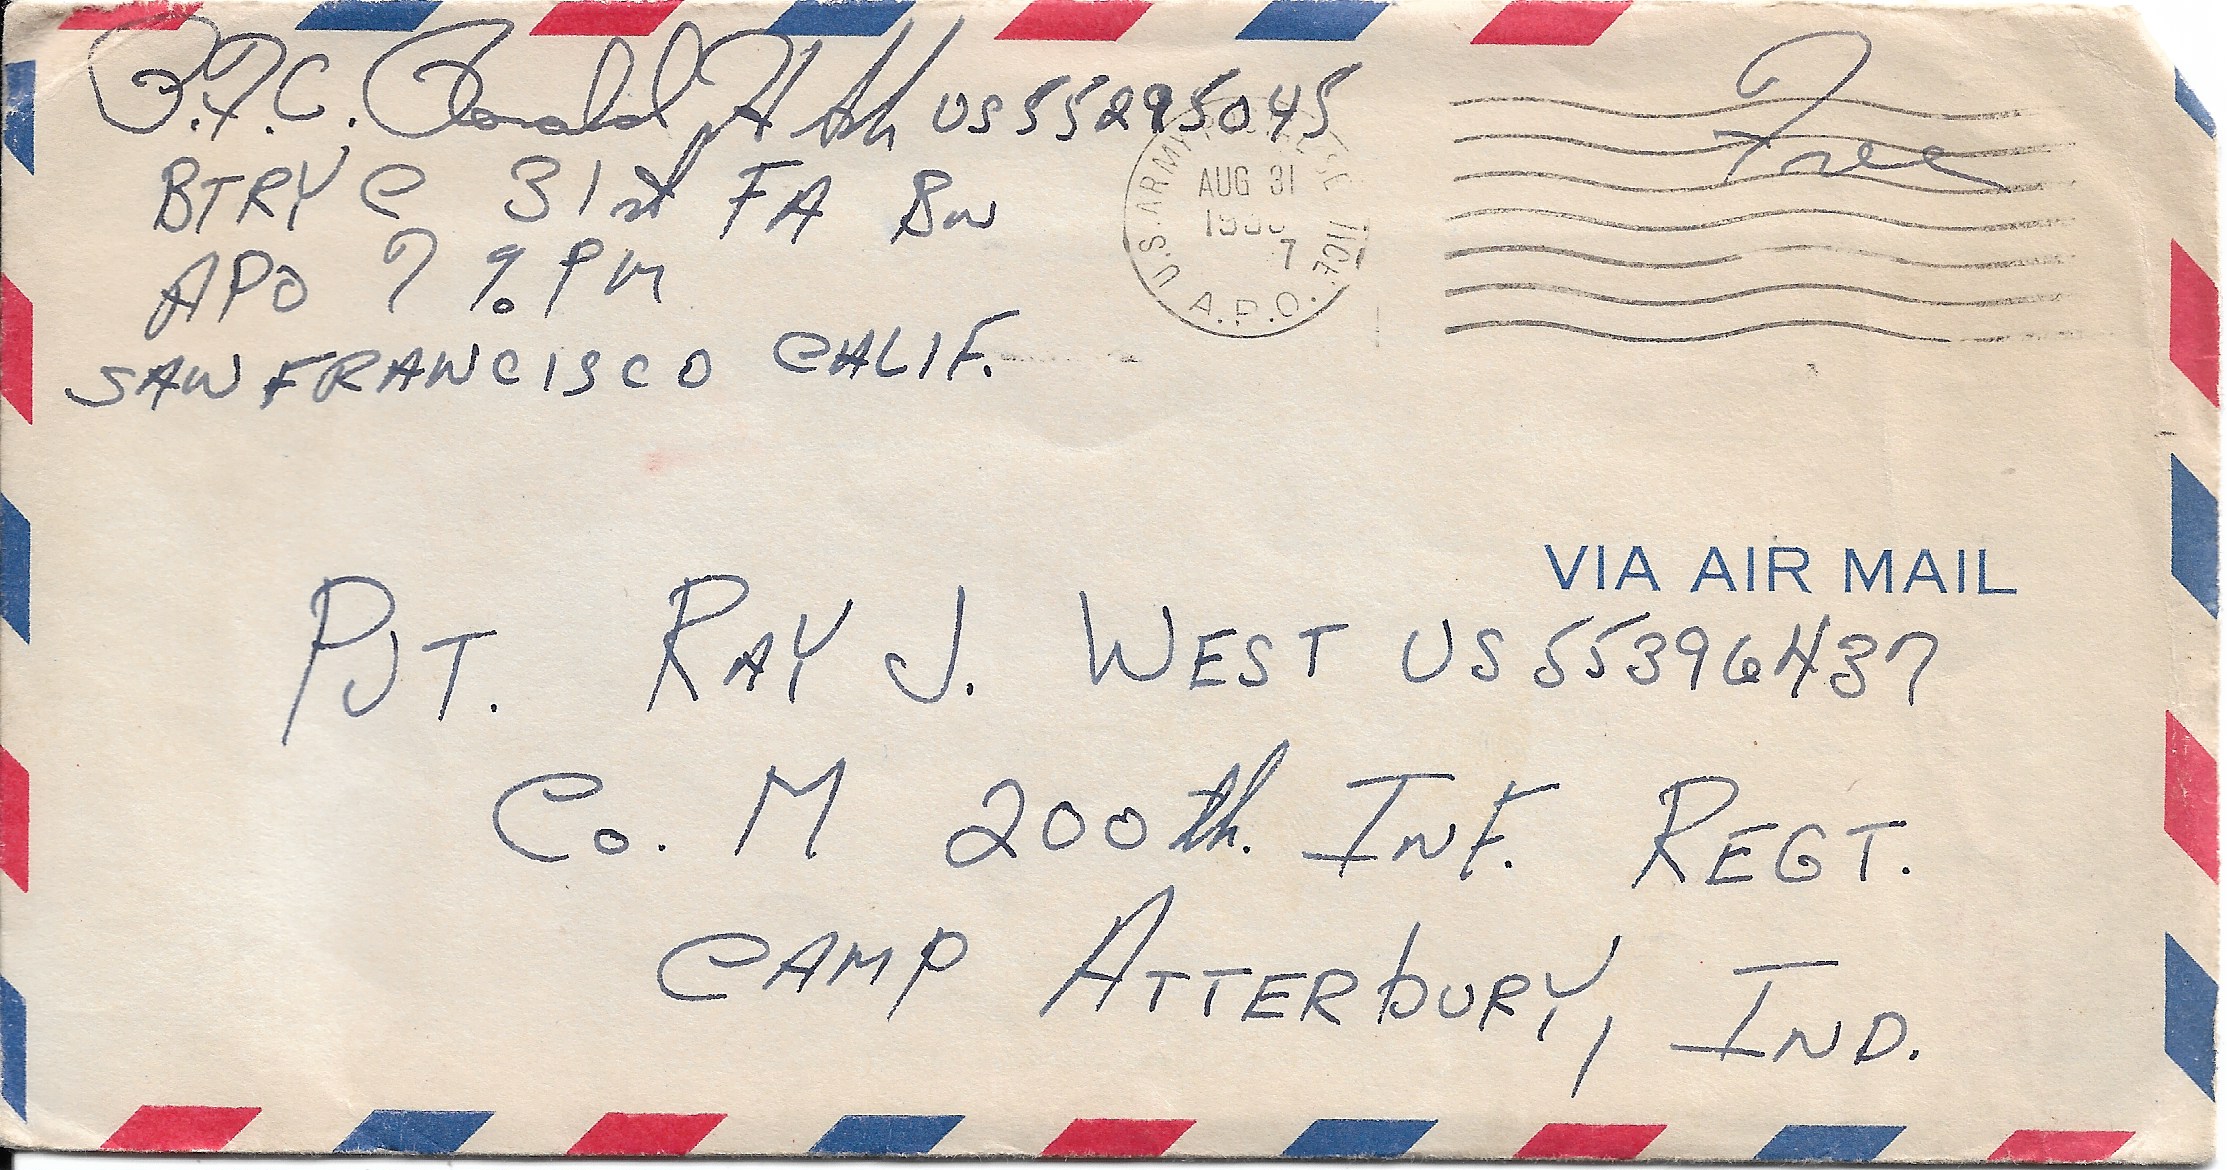 P.F.C. Ronald H US55295045
BTRY C 31st FA Bn
APO 7 % PM
SAN FRANCISCO CALIF.
U.S. ARMY
AUG 31
7
A.P.O.
Free
VIA AIR MAIL
PVT. RAY J. WEST US 55396437
Co. M 200th. INF. REGT.
CAMP ATTERBURY, IND.